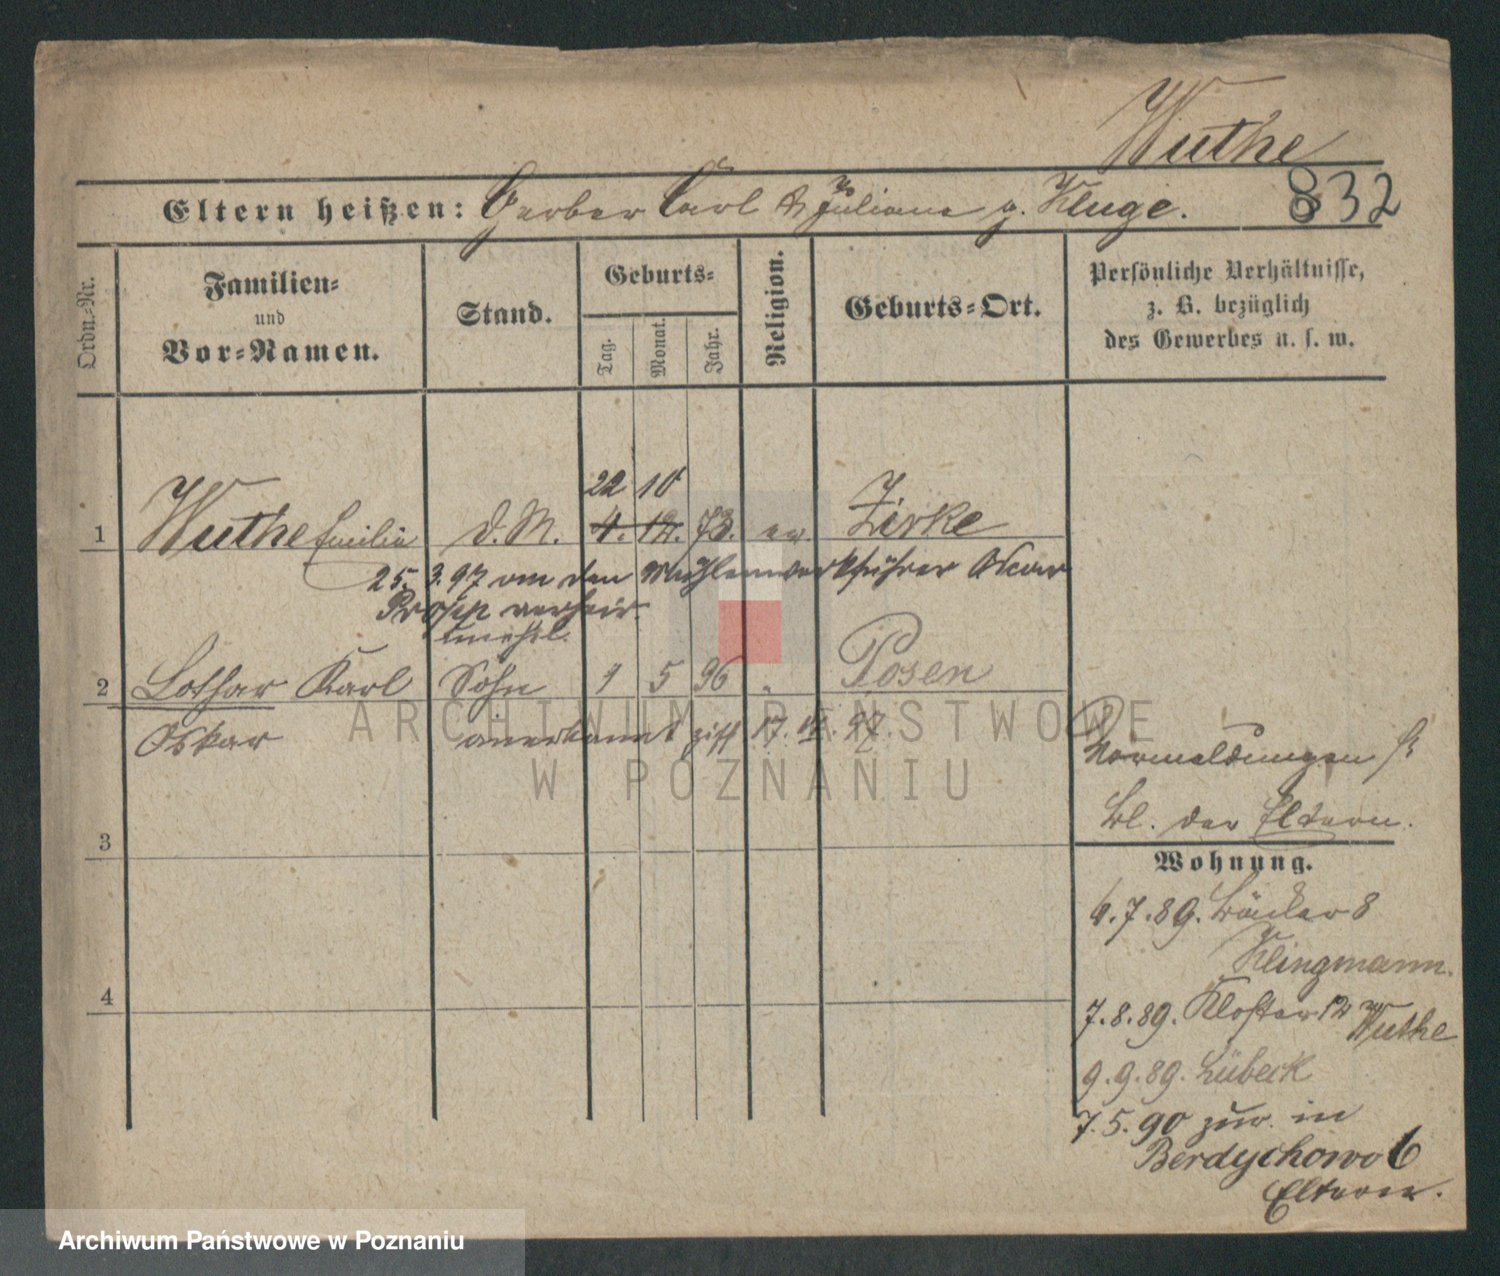 Wuthe
Eltern heißen: Gerber Carl & Juliane g. Kluge.
832
Ordn.-Nr.
Familien-
und
Vor-Namen.
Stand.
Geburts-
Tag.
Monat.
Jahr.
Religion.
Geburts-Ort.
Persönliche Verhältnisse,
z. B. bezüglich
des Gewerbes u. s. w.
22 10
1 Wuthe Emilie d. M. 4. 12. 73. ev. Zirke
25. 3. 97 an den Mühlenwerkführer Oscar
Propp verheir.
unehel.
2 Lothar Karl Sohn 1 5 96 " Posen
Oskar anerkannt 17. 97.
Vormeldungen
Bl. der Eltern.
3
Wohnung.
6.7.89. Bäcker 8
Klingmann.
4
7.8.89. Kloster 12 Wuthe
9.9.89. Lübeck
7.5.90 zur. in
Berdychowo 6
Eltern.
ARCHIWUM PAŃSTWOWE
W POZNANIU
Archiwum Państwowe w Poznaniu